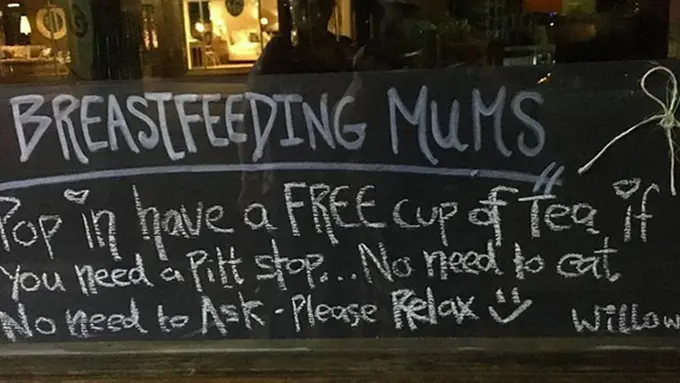 BREASTFEEDING MUMS
Pop in have a FREE cup of Tea if
you need a pitt stop... No need to eat
No need to Ask - Please Relax
Willow